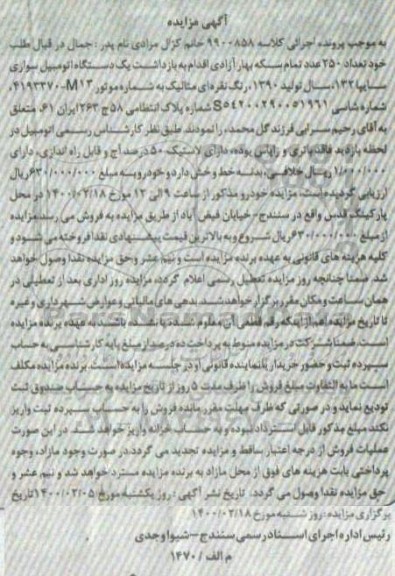 آگهی مزایده
به موجب پرونده اجرائی کلاسه ۹۹۰۰۸۵۸ خانم کژال مرادی نام پدر : جمال در قبال طلب
خود تعداد ۲۵۰ عدد تمام سکه بهار آزادی اقدام به بازداشت یک دستگاه اتومبیل سواری
سایپا ۱۳۲، سال تولید ۱۳۹۰، رنگ نقره ای متالیک به شماره موتور M13-۴۱۹۳۳۷۰،
شماره شاسی S۵۴۲۰۰۲۹۰۰۵۱۹۶۱ شماره پلاک انتظامی ۵۸ ج ۲۶۳ ایران ۶۱، متعلق
به آقای رحیم سرابی فرزند گل محمد، را نمودند. طبق نظر کارشناس رسمی اتومبیل در
لحظه بازدید فاقد باتری و زاپاس بوده، دارای لاستیک ۵۰ درصد آج و قابل راه اندازی، دارای
۱/۰۰۰/۰۰۰ ریال خلافی، بدنه خط و خش دارد و خودرو به مبلغ ۶۳۰/۰۰۰/۰۰۰ ریال
ارزیابی گردیده است. مزایده خودرو مذکور از ساعت ۹ الی ۱۲ مورخ ۱۴۰۰/۰۲/۱۸ در محل
پارکینگ قدس واقع در سنندج - خیابان فیض آباد از طریق مزایده به فروش می رسد. مزایده
از مبلغ ۶۳۰/۰۰۰/۰۰۰ ریال شروع و به بالاترین قیمت پیشنهادی نقدا فروخته می شود و
کلیه هزینه های قانونی به عهده برنده مزایده است و نیم عشر و حق مزایده نقدا وصول خواهد
شد. ضمنا چنانچه روز مزایده تعطیل رسمی اعلام گردد، مزایده روز اداری بعد از تعطیلی در
همان ساعت و مکان مقرر برگزار خواهد شد. بدهی های مالیاتی و عوارض شهرداری و غیره
تا تاریخ مزایده اعم از اینکه رقم قطعی آن معلوم شده یا نشده باشد به عهده برنده مزایده
است. ضمنا شرکت در مزایده منوط به پرداخت ده درصد از مبلغ پایه کارشناسی به حساب
سپرده ثبت و حضور خریدار یا نماینده قانونی او در جلسه مزایده است. برنده مزایده مکلف
است ما به التفاوت مبلغ فروش را ظرف مدت ۵ روز از تاریخ مزایده به حساب صندوق ثبت
تودیع نماید و در صورتی که ظرف مهلت مقرر مانده فروش را به حساب سپرده ثبت واریز
نکند مبلغ مذکور قابل استرداد نبوده و به حساب خزانه واریز خواهد شد. در این صورت
عملیات فروش از درجه اعتبار ساقط و مزایده تجدید می گردد. در صورت وجود مازاد، وجوه
پرداختی بابت هزینه های فوق از محل مازاد به برنده مزایده مسترد خواهد شد و نیم عشر و
حق مزایده نقدا وصول می گردد. تاریخ نشر آگهی : روز یکشنبه مورخ ۱۴۰۰/۰۲/۰۵ تاریخ
برگزاری مزایده : روز شنبه مورخ ۱۴۰۰/۰۲/۱۸
رئیس اداره اجرای اسناد رسمی سنندج - شیوا وجدی
م الف / ۱۴۷۰